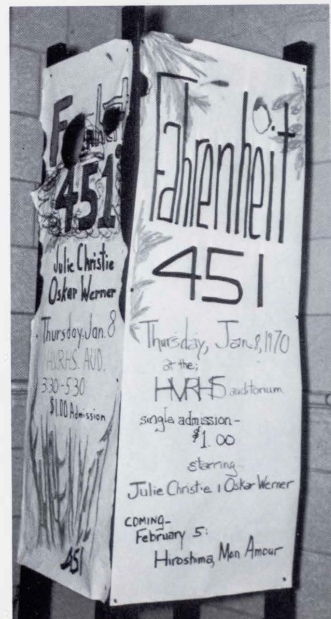 Fahrenheit
451
Julie Christie
Oskar Werner
Thursday-Jan. 8
HVRHS. AUD.
3:30-5:30
$1.00 Admission
451
Fahrenheit
451
Thursday, Jan. 8, 1970
at the;
HVRHS auditorium
single admission-
$1.00
starring
Julie Christie, Oskar Werner
COMING-
February 5:
Hiroshima, Mon Amour